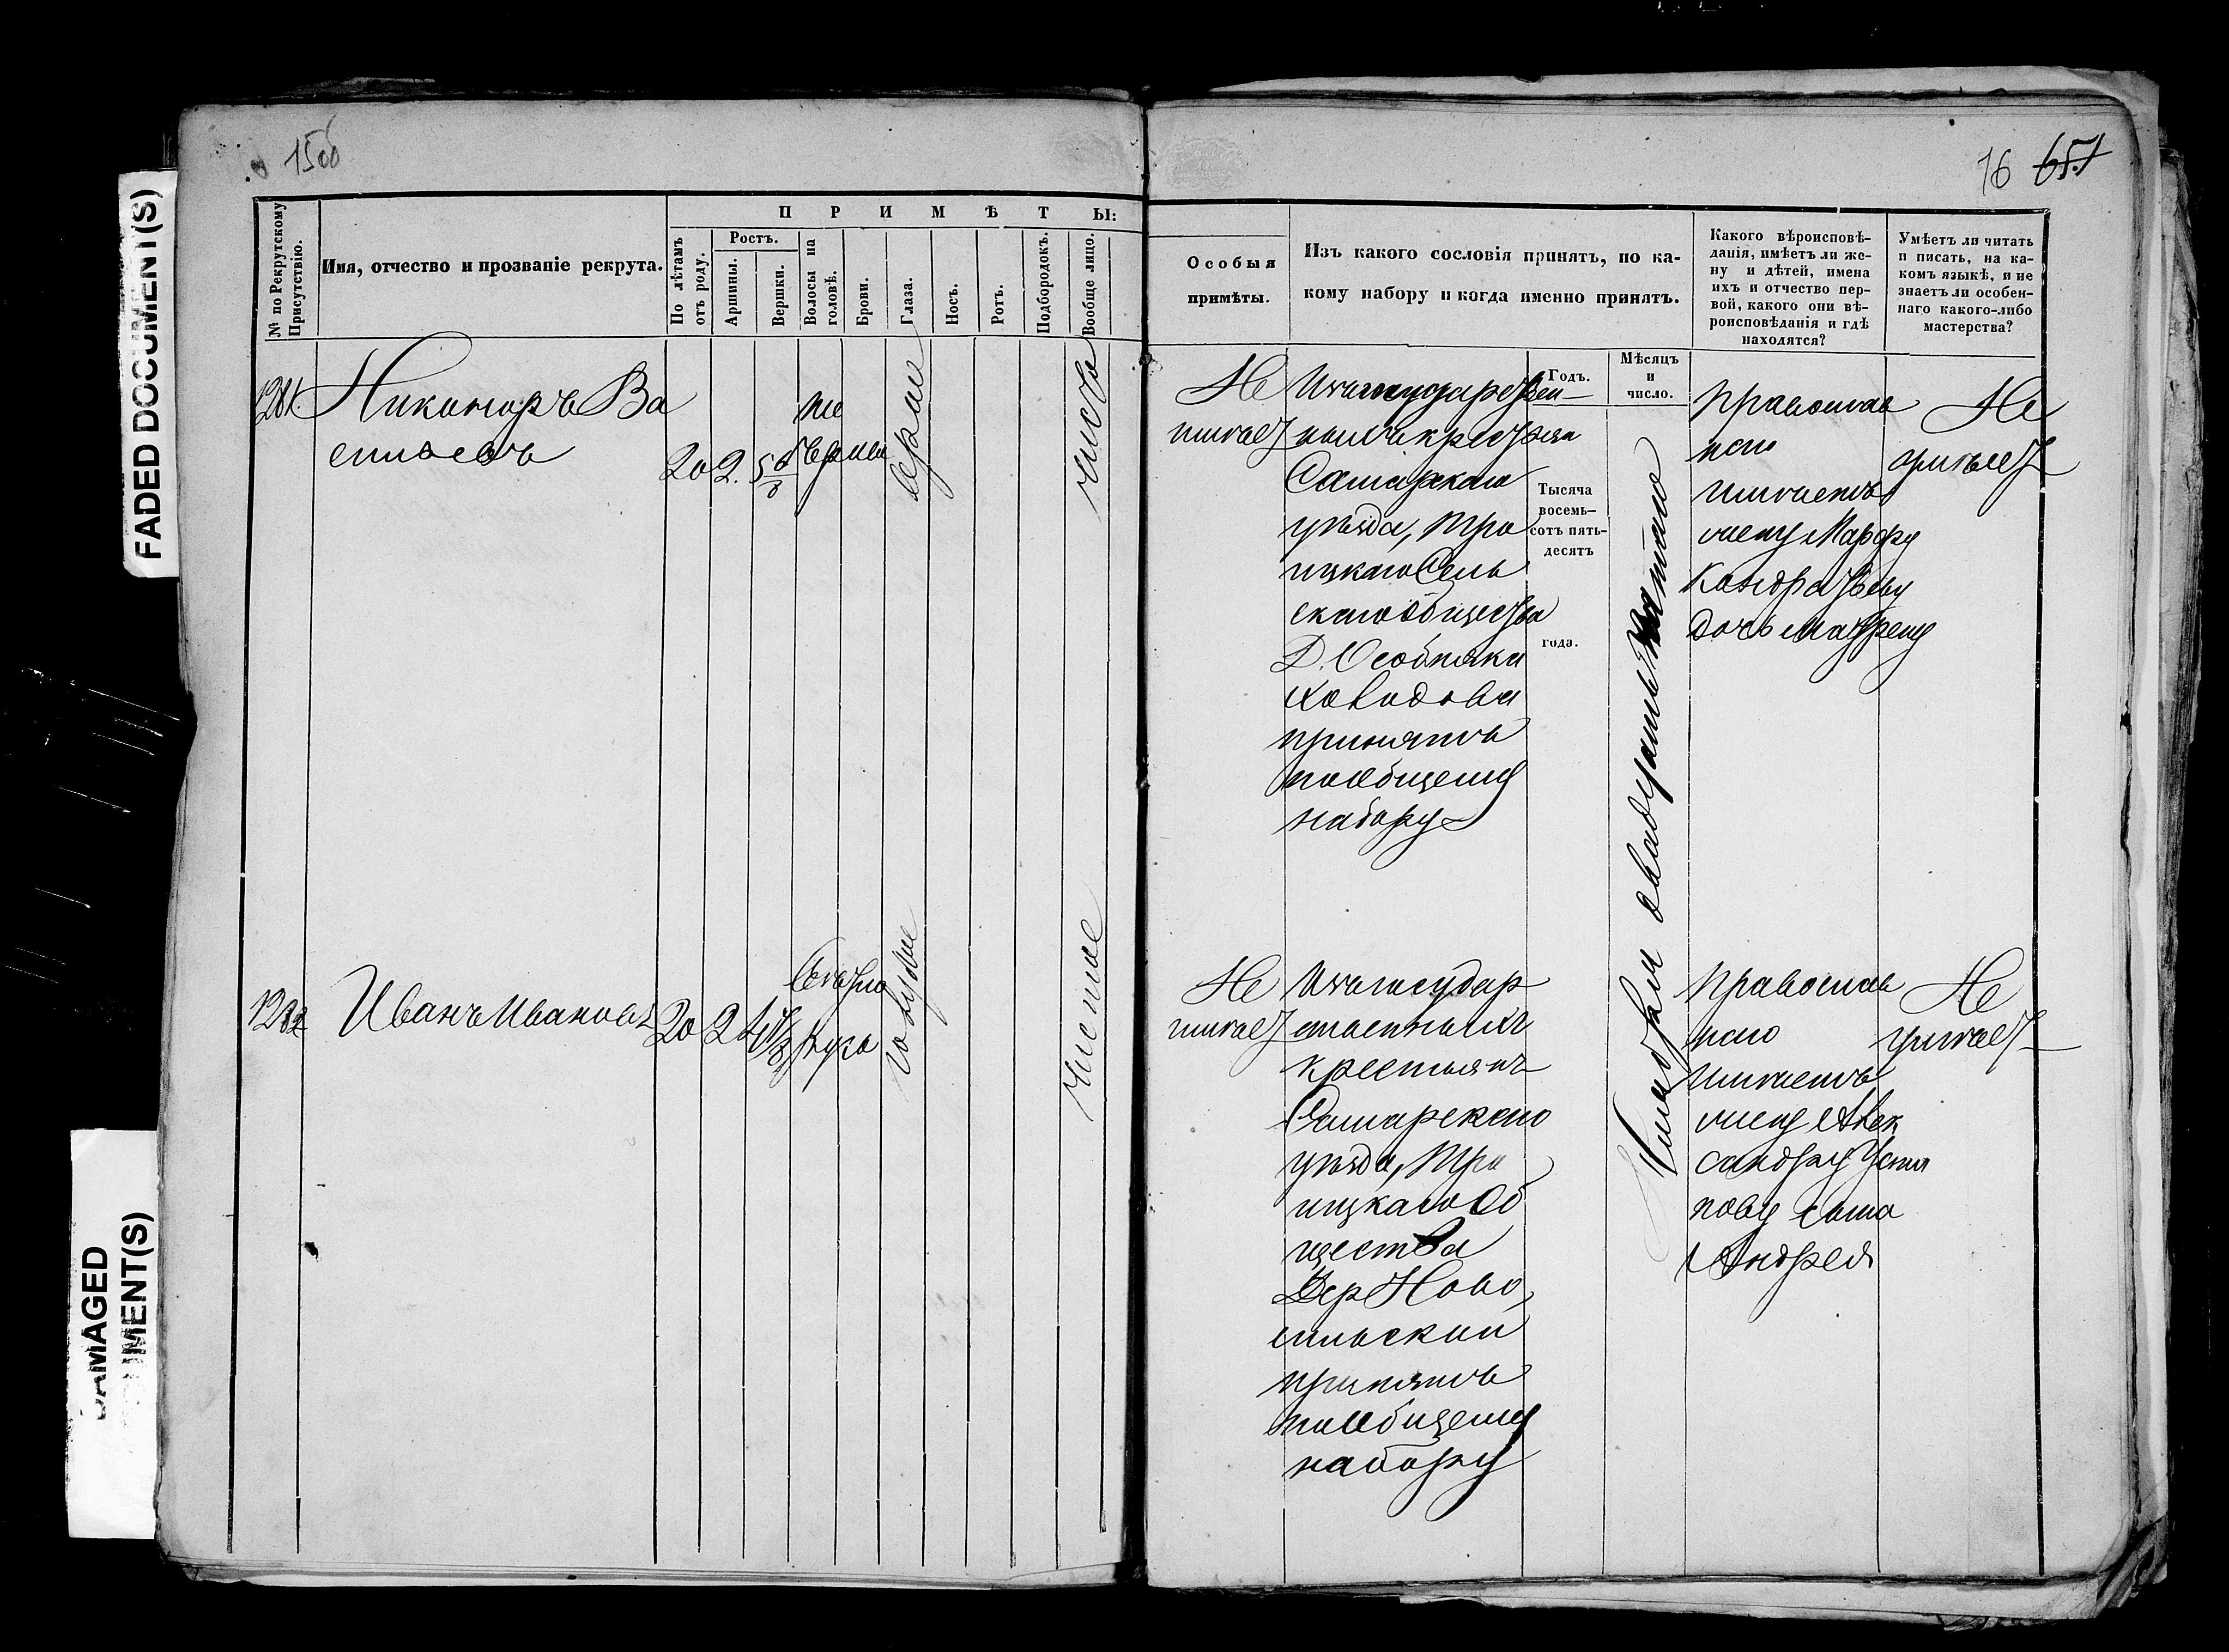 FADED DOCUMENT(S)
DAMAGED
DOCUMENT(S)
16
№ по Рекрутскому
Присутствію.
Имя, отчество и прозваніе рекрута.
П Р И М Ѣ Т Ы:
По лѣтамъ
отъ роду.
Ростъ.
Аршины.
Вершки.
Волосы на
головѣ.
Брови.
Глаза.
Носъ.
Ротъ.
Подбородокъ.
Вообще лицо.
Особыя
примѣты.
Изъ какого сословія принятъ, по ка-
кому набору и когда именно принятъ.
Какого вѣроисповѣ-
данія, имѣетъ ли же-
ну и дѣтей, имена
ихъ и отчество пер-
вой, какого они вѣ-
роисповѣданія и гдѣ
находятся?
Умѣетъ ли читать
и писать, на ка-
комъ языкѣ, и не
знаетъ ли особен-
наго какого-либо
мастерства?
Годъ.
Мѣсяцъ
и
число.
Тысяча
восемь-
сотъ пять-
десятъ
года.
1281
Никаноръ Ва
сильевъ
20
2
серые
чисто
Не
имѣет
Изъ государствен
ныхъ крестьян
Самарскаго
уѣзда, Тро
ицкаго Сель
скаго общества
Д. Особняки
принятъ
по общему
набору
Православ
наго
имѣетъ
жену Марфу
Кондратьеву
дочь Матрену
Не
умѣет
1282
Иванъ Ивановъ
20
2
Светло
русо
голубые
чистое
Не
имѣет
Изъ государ
ственныхъ
крестьянъ
Самарскаго
уѣзда, Тро
ицкаго Об
щества
Дер Ново
сильский
принятъ
по общему
набору
Православ
наго
имѣетъ
жену Алек
сандру Усти
нову сына
Андрея
Не
умѣет